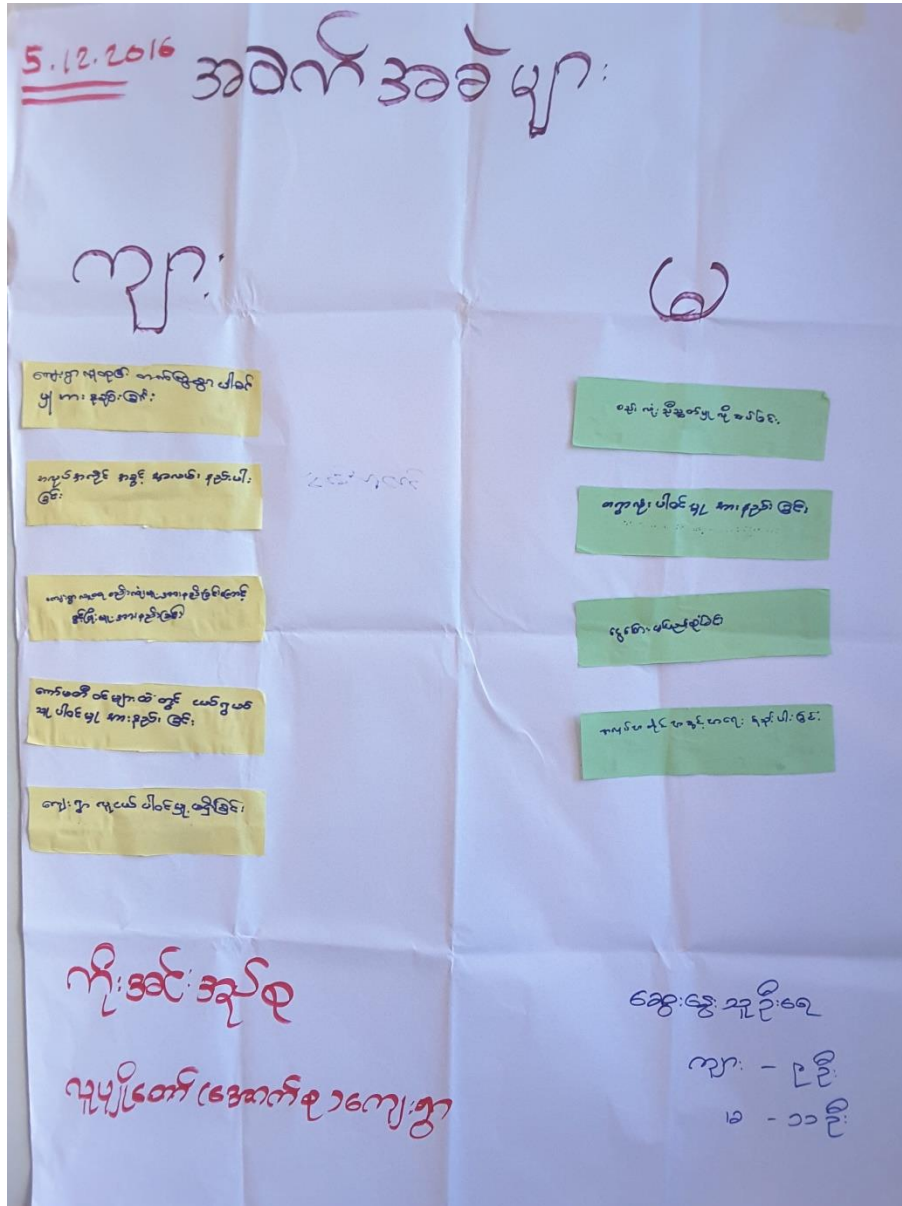 5.12.2016
အခက်အခဲများ
ကျား
မ
ကျေးရွာလူထု၏ တက်ကြွစွာ ပါဝင်
မှု အား နည်းခြင်း
အလုပ်အကိုင် အခွင့် အလမ်း နည်းပါး
ခြင်း
ကျေးရွာလူထု စည်းလုံးမှု အားနည်းခြင်းကြောင့်
ဖွံ့ဖြိုးမှု အားနည်းခြင်း
ကော်မတီဝင်များထဲတွင် လယ်ယာ
သူ ပါဝင်မှု အားနည်း ခြင်း
ကျေးရွာ လူငယ် ပါဝင်မှု မရှိခြင်း
စည်းလုံးညီညွတ်မှု လိုအပ်ခြင်း
တရွာလုံး ပါဝင်မှု အားနည်း ခြင်း
ငွေကြေး မပြည့်စုံခြင်း
အလုပ်အကိုင်အခွင့်အရေး နည်းပါးခြင်း
ကိုးအင်းအုပ်စု
လူပျိုတော်(အောက်စု)ကျေးရွာ
ဆွေးနွေးသူဦးရေ
ကျား - ၉ ဦး
မ - ၁၁ ဦး